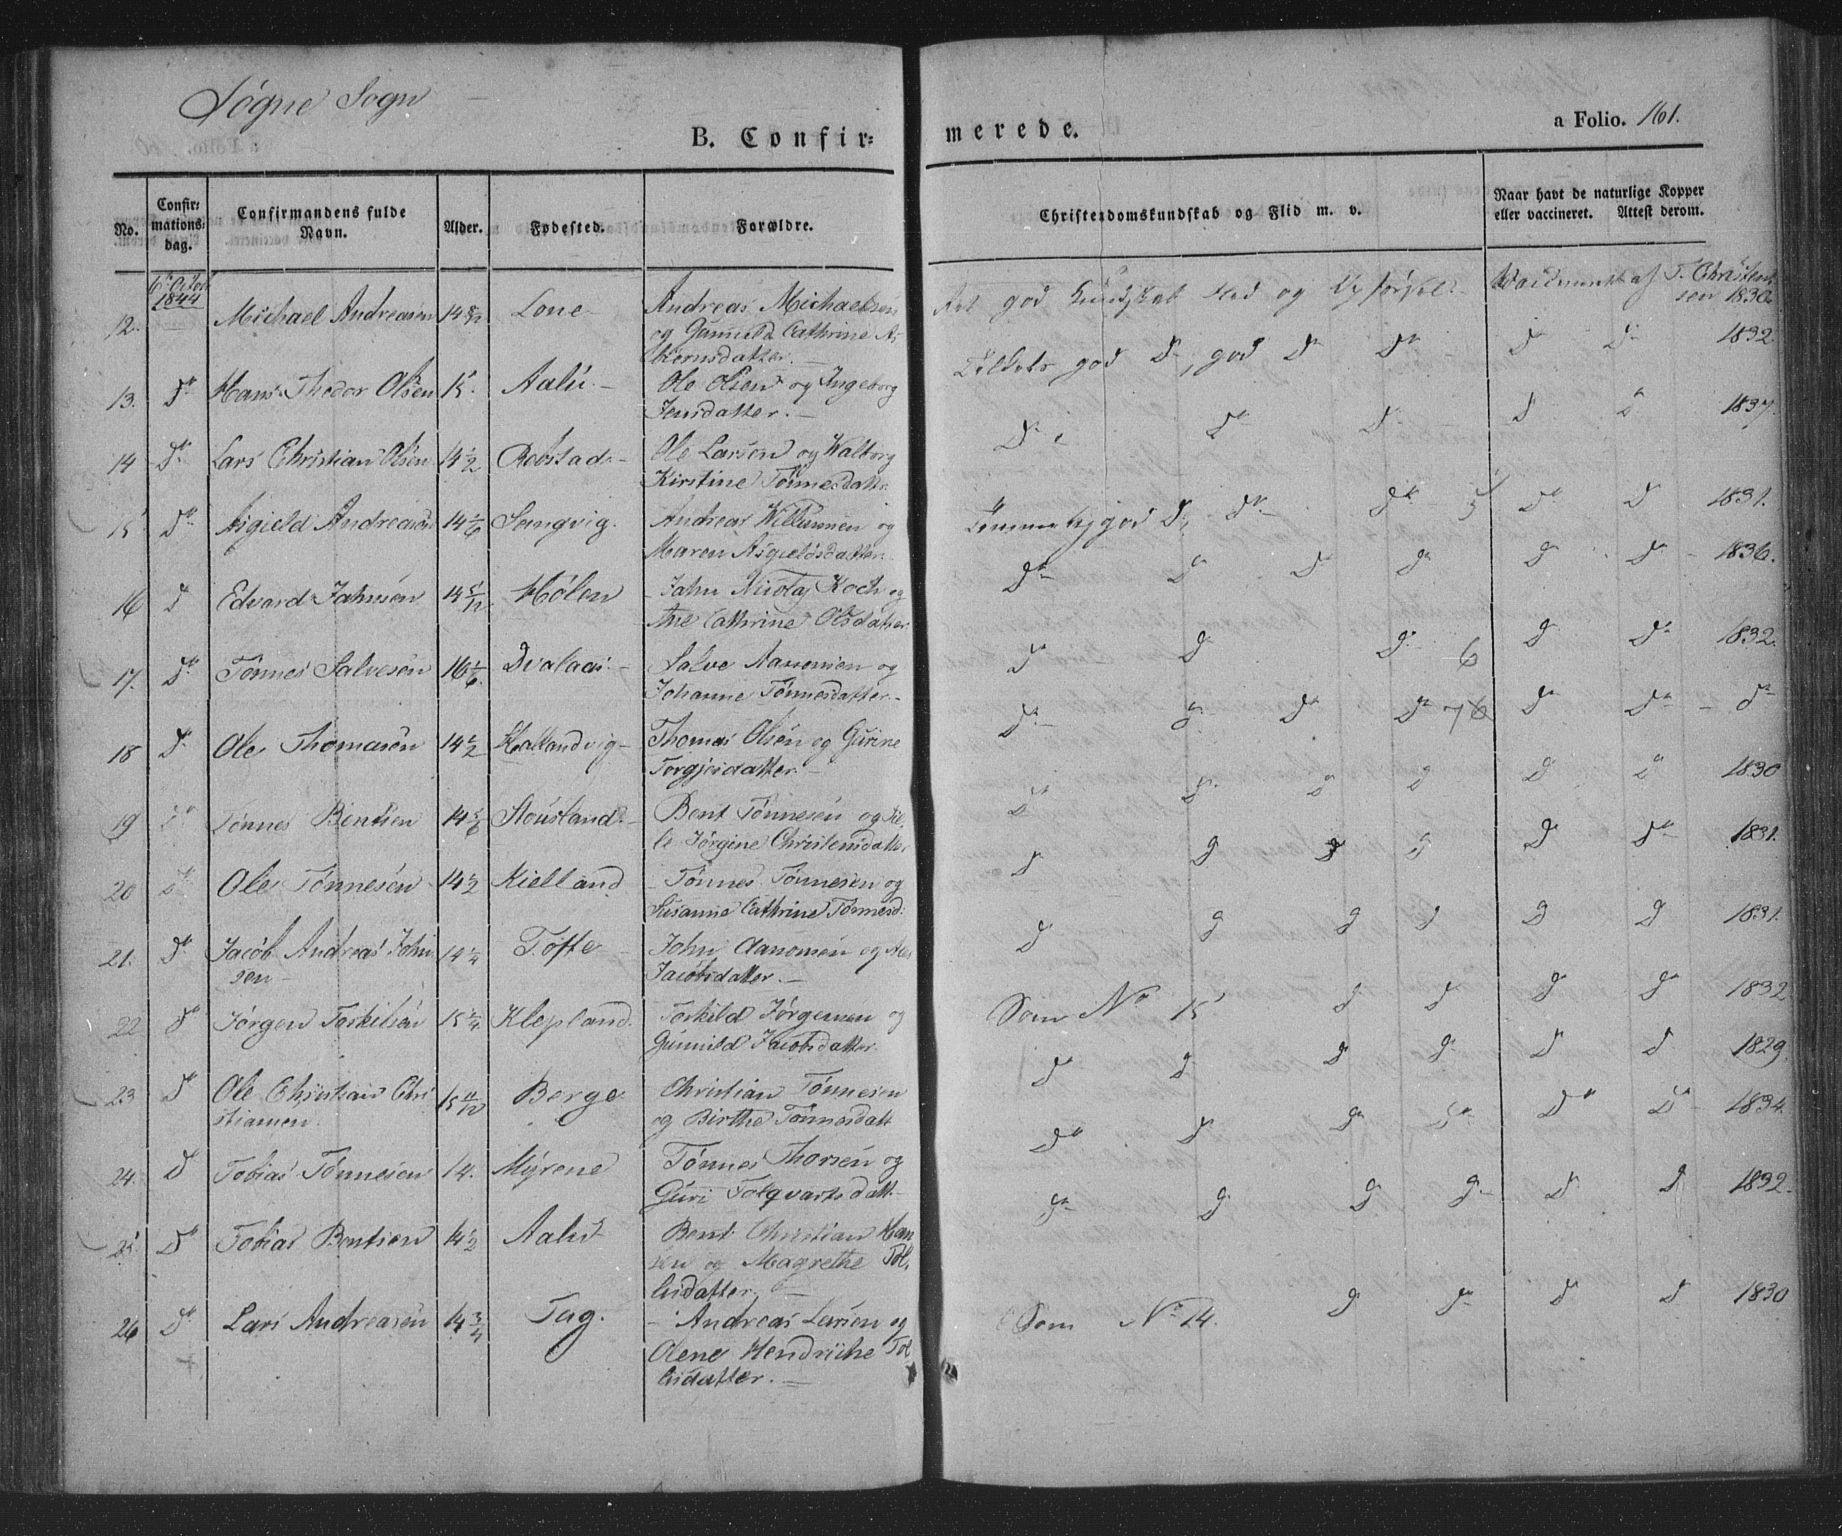 Søgne Sogn
B. Confir= merede. a Folio. 161.
No. Confir= mations= dag. Confirmandens fulde Navn. Alder. Fødested. Forældre. Christendomskundskab og Flid m. v. Naar havt de naturlige Kopper eller vaccineret. Attest derom.
6te Octob 1844
12. Michael Andreasen 14 Lone Andreas Michaelsen
og Gunnild Cathrine
god Kundskab Flid og T. Christen=
sen 1830.
13. Do Hans Thedor Olsen 15. Aalu. Ole Olsen og Ingeborg
Jensdatter. god Do, god Do Do Do Do 1832
14 Do Lars Christian Olsen 14 1/2 Robstad Ole Larsen og Walborg
Kirstine Tønnesdattr Do Do Do D D 1837.
15 Do Asgield Andreasen 14 1/6 Songvig. Andreas Willumsen og
Maren Asgieldsdatter. god Do, Do Do Do D 1831.
16 D Edvard Jahnsen 14 5/12 Hølen Jahn Nicolaj Koch og
Ane Cathrine Olsdatter Do Do D Do D Do 1836.
17. Do Tønnes Salvesen 16 1/6 Dvalaas Salve Aanonsen og
Johanne Tønnesdatter Do D Do 6 D Do 1832.
18 Do Ole Thomasen 14 1/2 Hallandvig Thomas Olsen og Gurine
Torgjusdatter Do D Do Do 76 Do Do Do
19 Do Tønnes Bentsen 14 5/6 Stousland Bent Tønnesen og Sil=
le Jørgine Christensdatter Do D D D D Do 1830
20 Do Ole Tønnesen 14 1/2 Kielland Tønnes Tønnesen og
Susanne Cathrine Tønnesd: D D D D Do Do 1831.
21. Do Jacob Andreas John
sen 14 1/4 Tofte John Aanonsen og
Jacobsdatter. D D D D D D 1831.
22 Do Jørgen Torkilsen 15 1/4 Klepland. Torkild Jørgensen og
Gunnild Jacobsdatter Som No 15 D D D D 1832
23. Do Ole Christian Chri
stiansen. 15 11/12 Berge Christian Tønnesen
og Birthe Tønnesdatt D D D D D D 1829.
24. D Tobias Tønnesen 14. Myrene Tønnes Thorsen og
Guri Tolqvartsdatt. Do D Do Do Do Do 1834.
25. Do Tobias Bentsen 14 1/2 Aalu Bent Christian Han
sen og Magrethe Tol,
lisdatter. Do D D D D D 1832.
26 Do Lars Andreasen 14 3/4 Tag. Andreas Larsen og
Olene Hendrikke Tol
lisdatter. Som No 14. D Do D D 1830